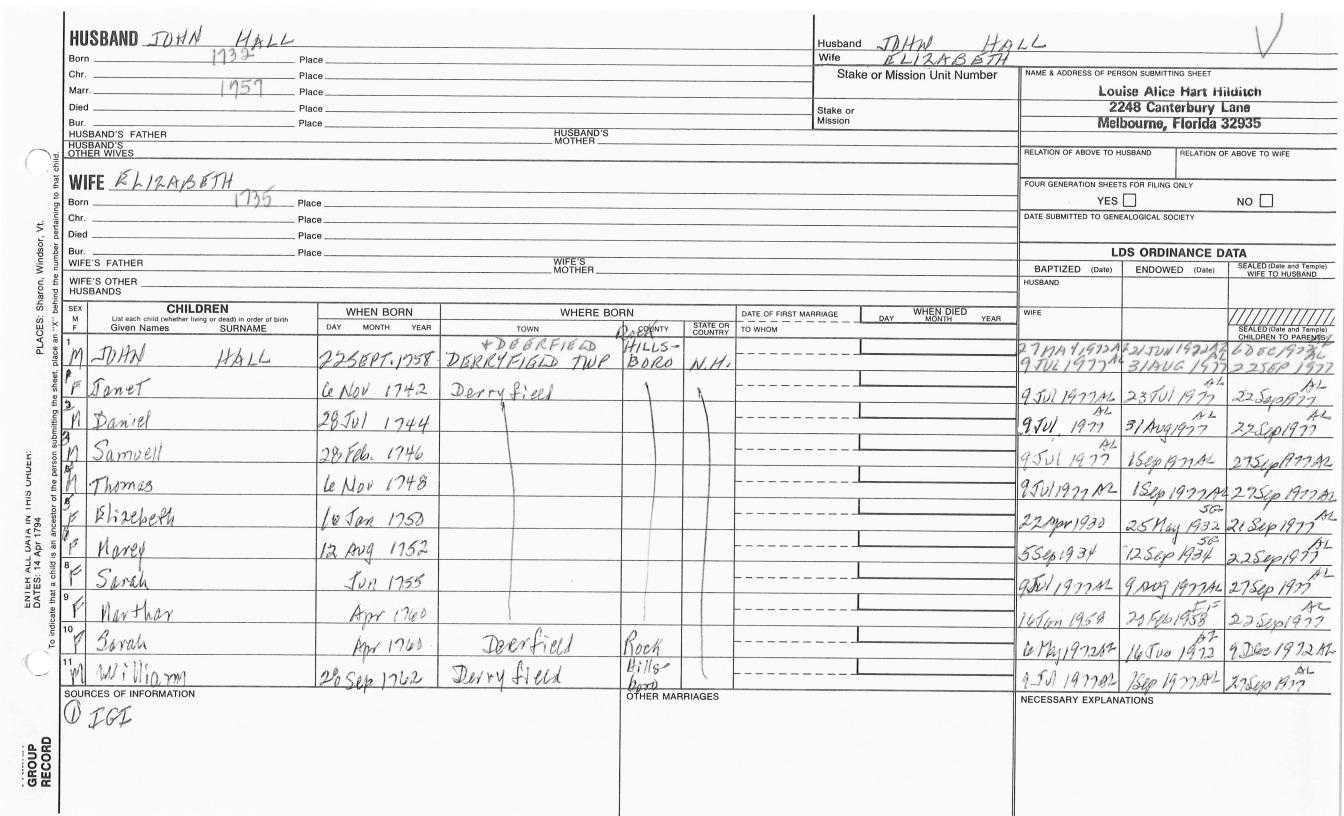 HUSBAND JOHN HALL
Born 1732 Place
Chr. Place
Marr. 1757 Place
Died Place
Bur. Place
HUSBAND'S FATHER HUSBAND'S MOTHER
HUSBAND'S OTHER WIVES
Husband JOHN HALL
Wife ELIZABETH
Stake or Mission Unit Number
Stake or Mission
NAME & ADDRESS OF PERSON SUBMITTING SHEET
Louise Alice Hart Hilditch
2248 Canterbury Lane
Melbourne, Florida 32935
RELATION OF ABOVE TO HUSBAND RELATION OF ABOVE TO WIFE
FOUR GENERATION SHEETS FOR FILING ONLY
YES NO
DATE SUBMITTED TO GENEALOGICAL SOCIETY
WIFE ELIZABETH
Born 1735 Place
Chr. Place
Died Place
Bur. Place
WIFE'S FATHER WIFE'S MOTHER
WIFE'S OTHER HUSBANDS
LDS ORDINANCE DATA
BAPTIZED (Date) ENDOWED (Date) SEALED (Date and Temple) WIFE TO HUSBAND
HUSBAND
WIFE
SEALED (Date and Temple) CHILDREN TO PARENTS
SEX M F
CHILDREN
List each child (whether living or dead) in order of birth
Given Names SURNAME
WHEN BORN
DAY MONTH YEAR
WHERE BORN
TOWN COUNTY STATE OR COUNTRY
Rock
DATE OF FIRST MARRIAGE
TO WHOM
WHEN DIED
DAY MONTH YEAR
+ DEERFIELD HILLS- 27 MAY 1972AZ 21 JUN 1972AZ 6 DEC 1972
1 M JOHN HALL 22 SEPT. 1758 DERRYFIELD TWP BORO N.H. 9 JUL 1977 AL 31 AUG 1977 AL 22 SEP 1977 AL
F Janet 6 Nov 1742 Derryfield 9 Jul 1977 AL 23 Jul 1977 AL 22 Sep 1977 AL
M Daniel 28 Jul 1744 9 Jul 1977 AL 31 Aug 1977 AL 27 Sep 1977 AL
M Samuell 28 Feb. 1746 9 Jul 1977 AL 1 Sep 1977 AL 27 Sep 1977 AL
M Thomas 6 Nov 1748 9 Jul 1977 AL 1 Sep 1977 AL 27 Sep 1977 AL
F Elizebeth 10 Jan 1750 22 Apr 1930 25 May 1932 SG 21 Sep 1977 AL
F Marey 12 Aug 1752 5 Sep 1934 12 Sep 1934 SG 22 Sep 1977 AL
8 F Sarah Jun 1755 9 Jul 1977 AL 9 Aug 1977 AL 27 Sep 1977 AL
9 F Marthar Apr 1760 16 Jan 1958 20 Feb 1958 22 Sep 1977 AL
10 F Sarah Apr 1760 Deerfield Rock 6 May 1972AZ 16 Jun 1972 AZ 9 Dec 1972 AL
11 M William 28 Sep 1762 Derryfield Hills- boro 9 Jul 1977 AL 1 Sep 1977 AL 27 Sep 1977 AL
SOURCES OF INFORMATION
① IGI
OTHER MARRIAGES
NECESSARY EXPLANATIONS
ENTER ALL DATA IN THIS ORDER:
DATES: 14 Apr 1794
PLACES: Sharon, Windsor, Vt.
To indicate that a child is an ancestor of the person submitting the sheet, place an "X" behind the number pertaining to that child.
GROUP
RECORD